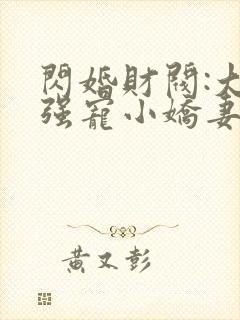 閃婚財閥:大
强寵小嬌妻
黃又彭